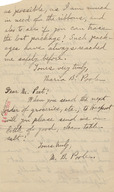 as possible, as I am much
in need of the ribbons, and
also to ask if you can trace
the lost package? Such pack-
ages have always reached
me safely before.
Yours very truly,
Maria H. Porter.
Dear Mr. Post:
When you send the next
order of groceries, etc., to
will you please send me
bottle of good
Yours truly,
M. H. Porter.